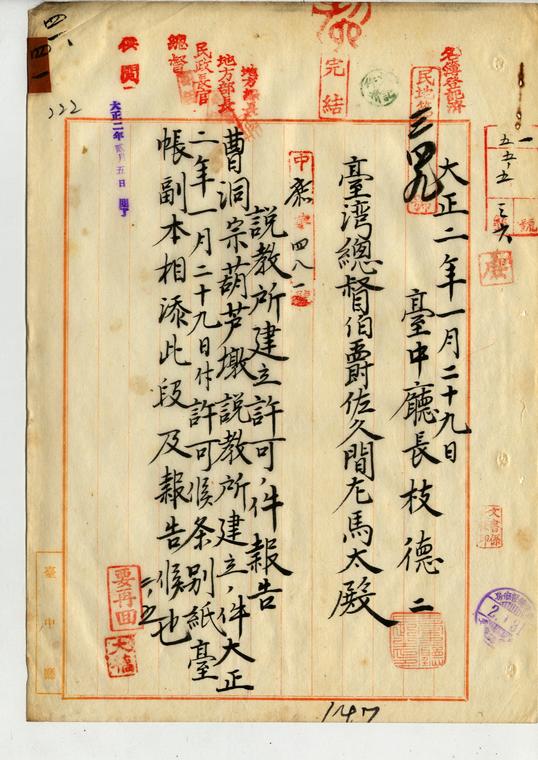 名簿登記濟
完結
供閲
總督
民政長官
地方部長
大正二年貳月五日
大正二年一月二十九日
臺中廳長枝德二
臺湾總督伯爵佐久間左馬太殿
中庶第四八一號
說教所建立許可ノ件報告
曹洞宗葫芦墩說教所建立ノ件大正
二年一月二十九日付許可候条別紙臺
帳副本相添此段及報告候也
要再回
大橋
文書係
臺中廳
222
147